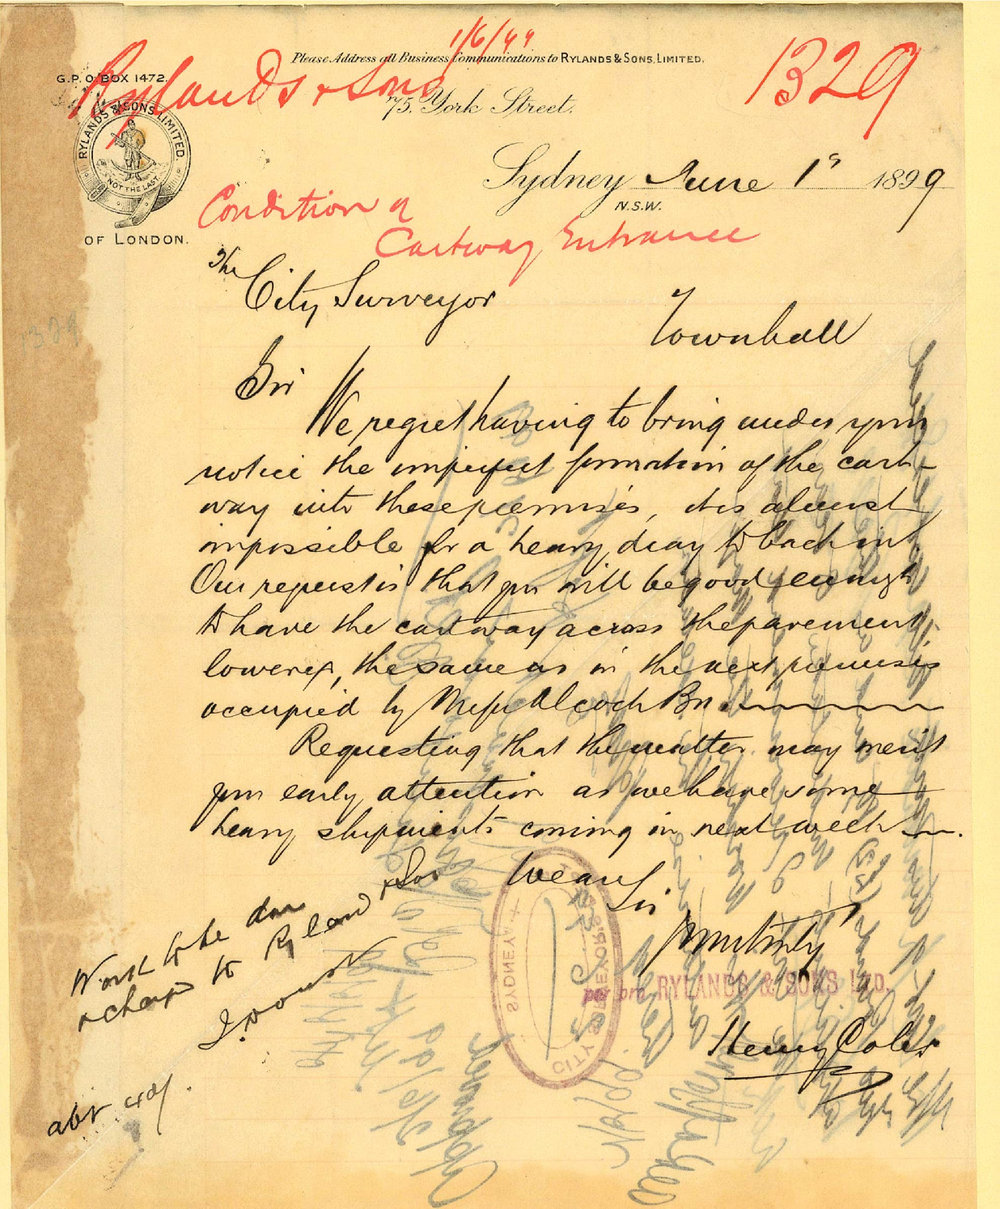 1/6/99
Please Address all Business Communications to RYLANDS & SONS, LIMITED.
G.P.O BOX 1472.
Rylands & Sons
1329
75, York Street.
RYLANDS & SONS LIMITED.
NOT THE LAST
OF LONDON.
Sydney June 1st 1899
N.S.W.
Condition of
Cartway Entrance
1329
The
City Surveyor
Townhall
Sir
We regret having to bring under your
notice the imperfect formation of the cart-
way into these premises, it is almost
impossible for a heavy dray to back in.
Our request is that you will be good enough
to have the cartway across the pavement
lowered, the same as in the next premises
occupied by Messrs Alcock Bros.
Requesting that the matter may merit
your early attention as we have some
heavy shipments coming in next week.
We are
Sir
Yours truly
per pro RYLANDS & SONS LTD.
Henry Coles
Work to be done
& charged to Ryland & Son
abt 40/.
CITY SURVEYOR'S
SYDNEY